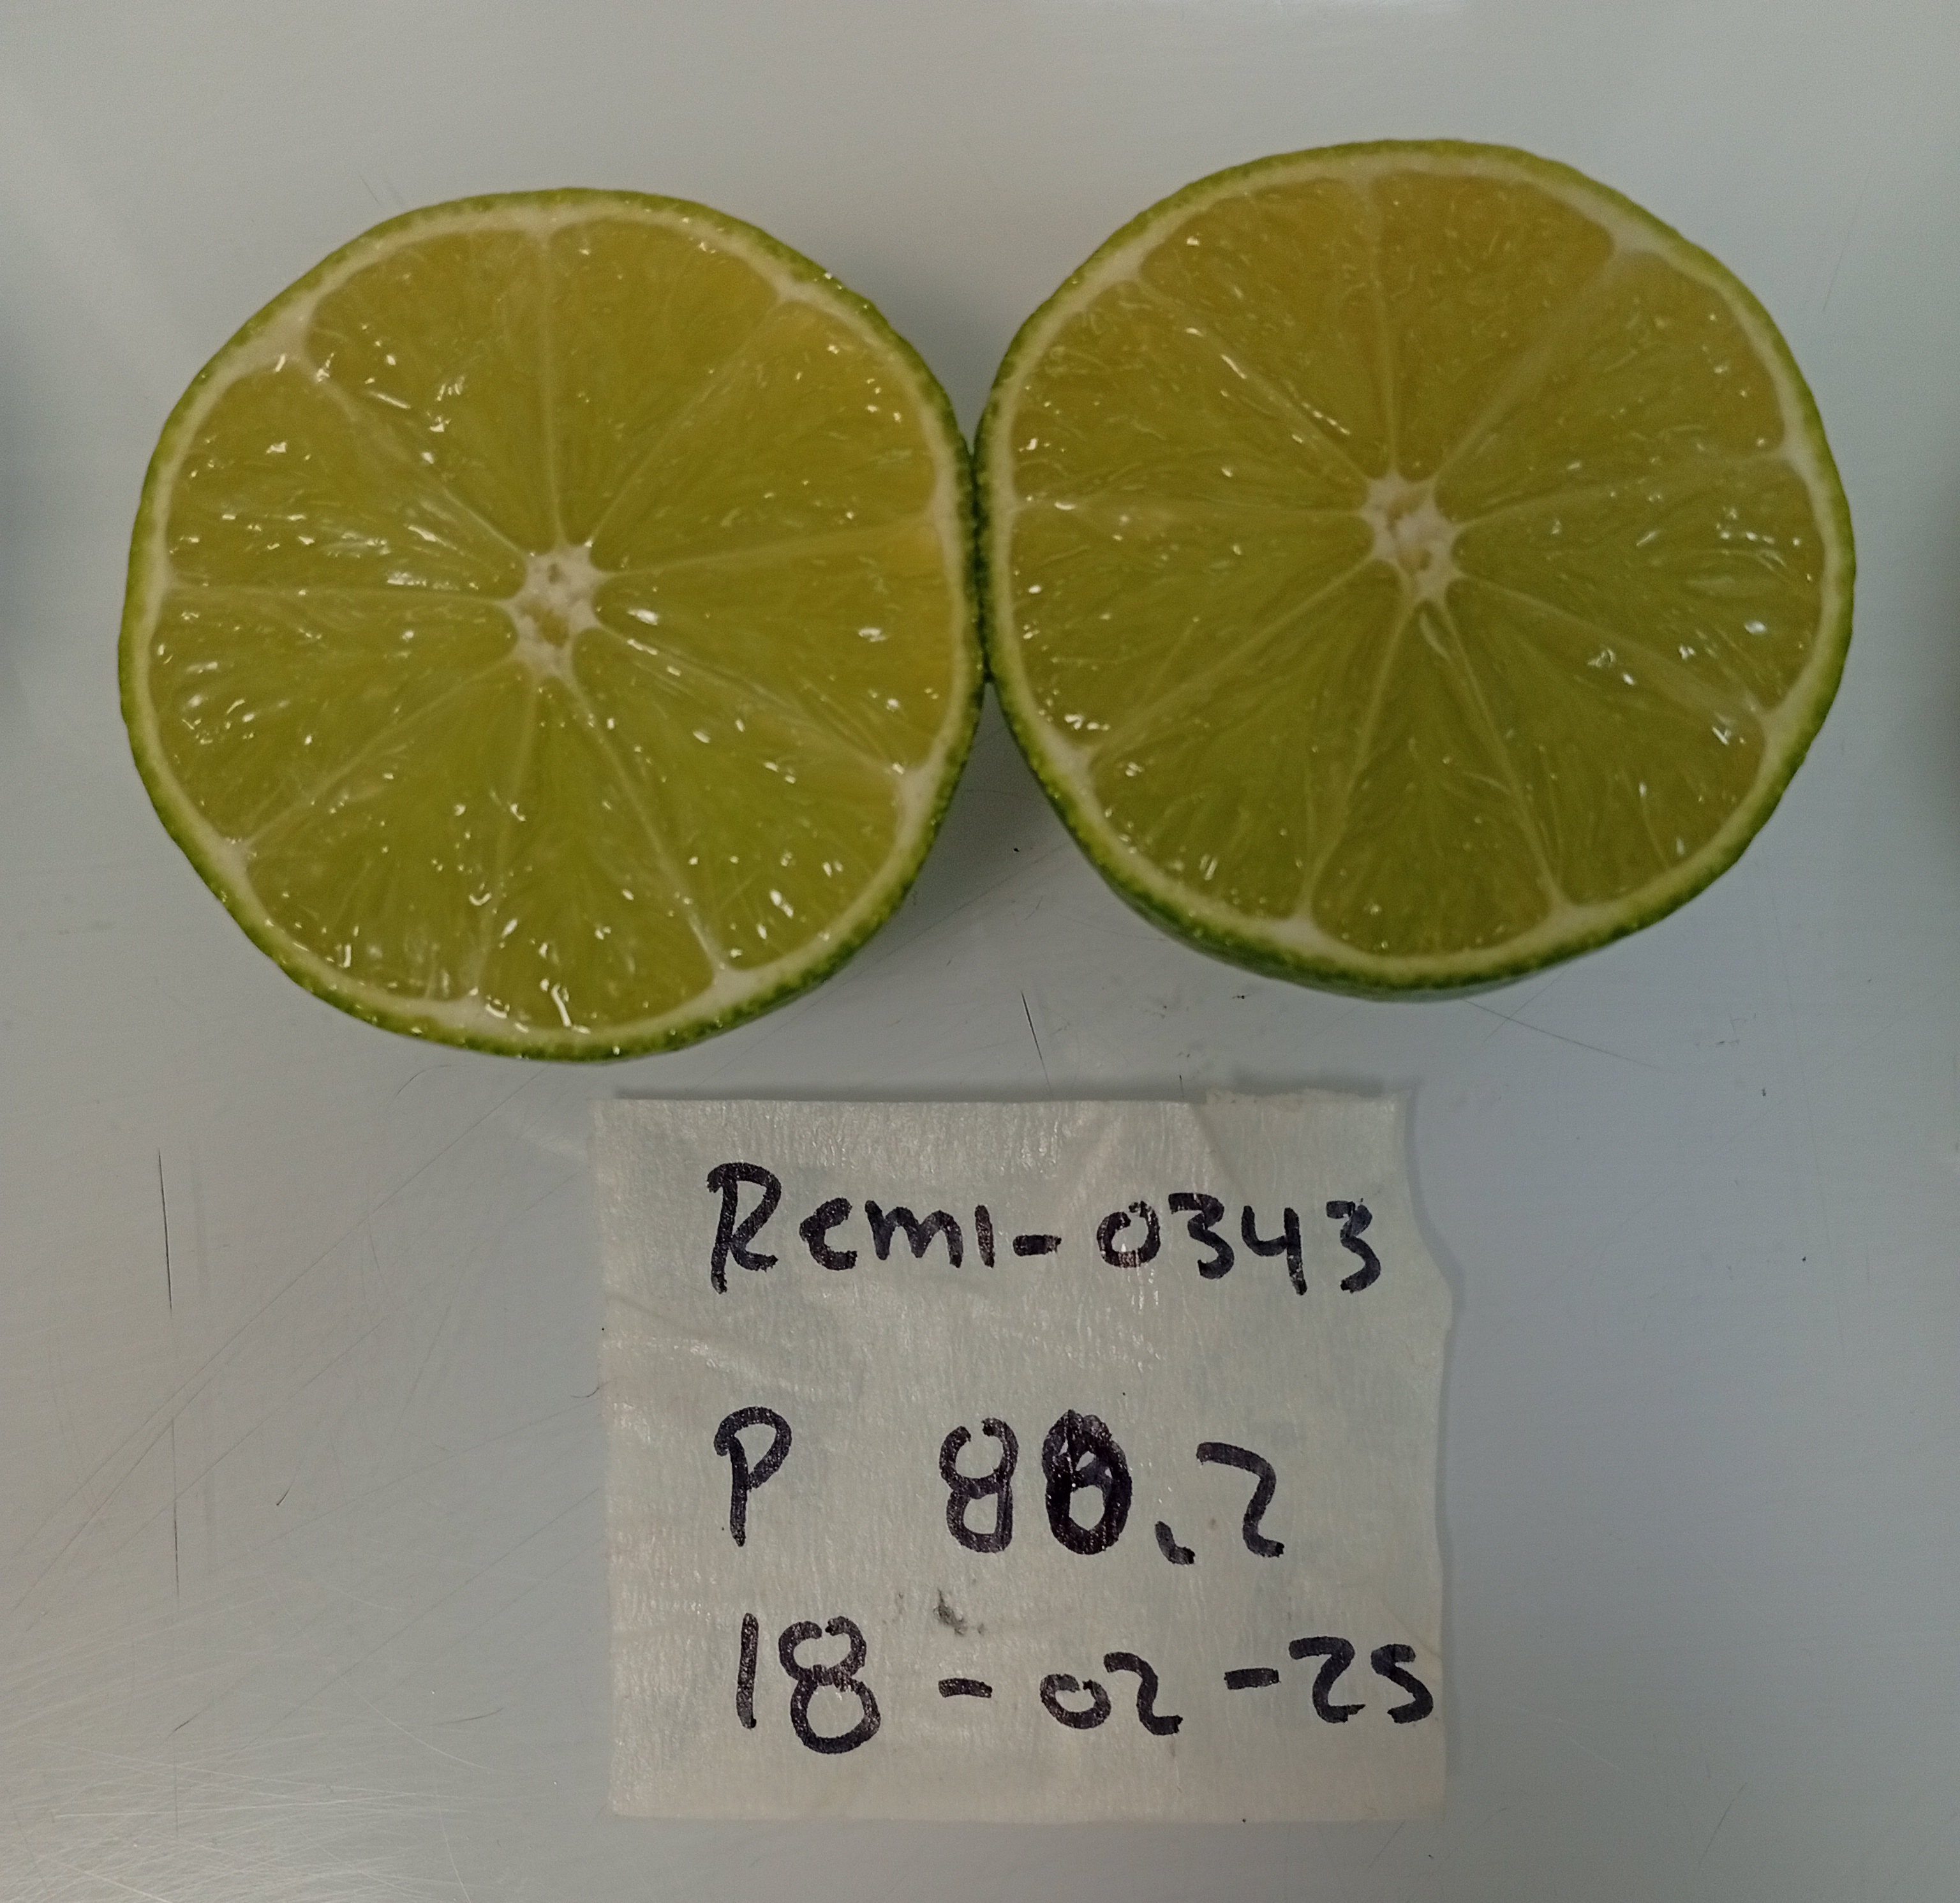 Remi-0343
P 80.2
18-02-25